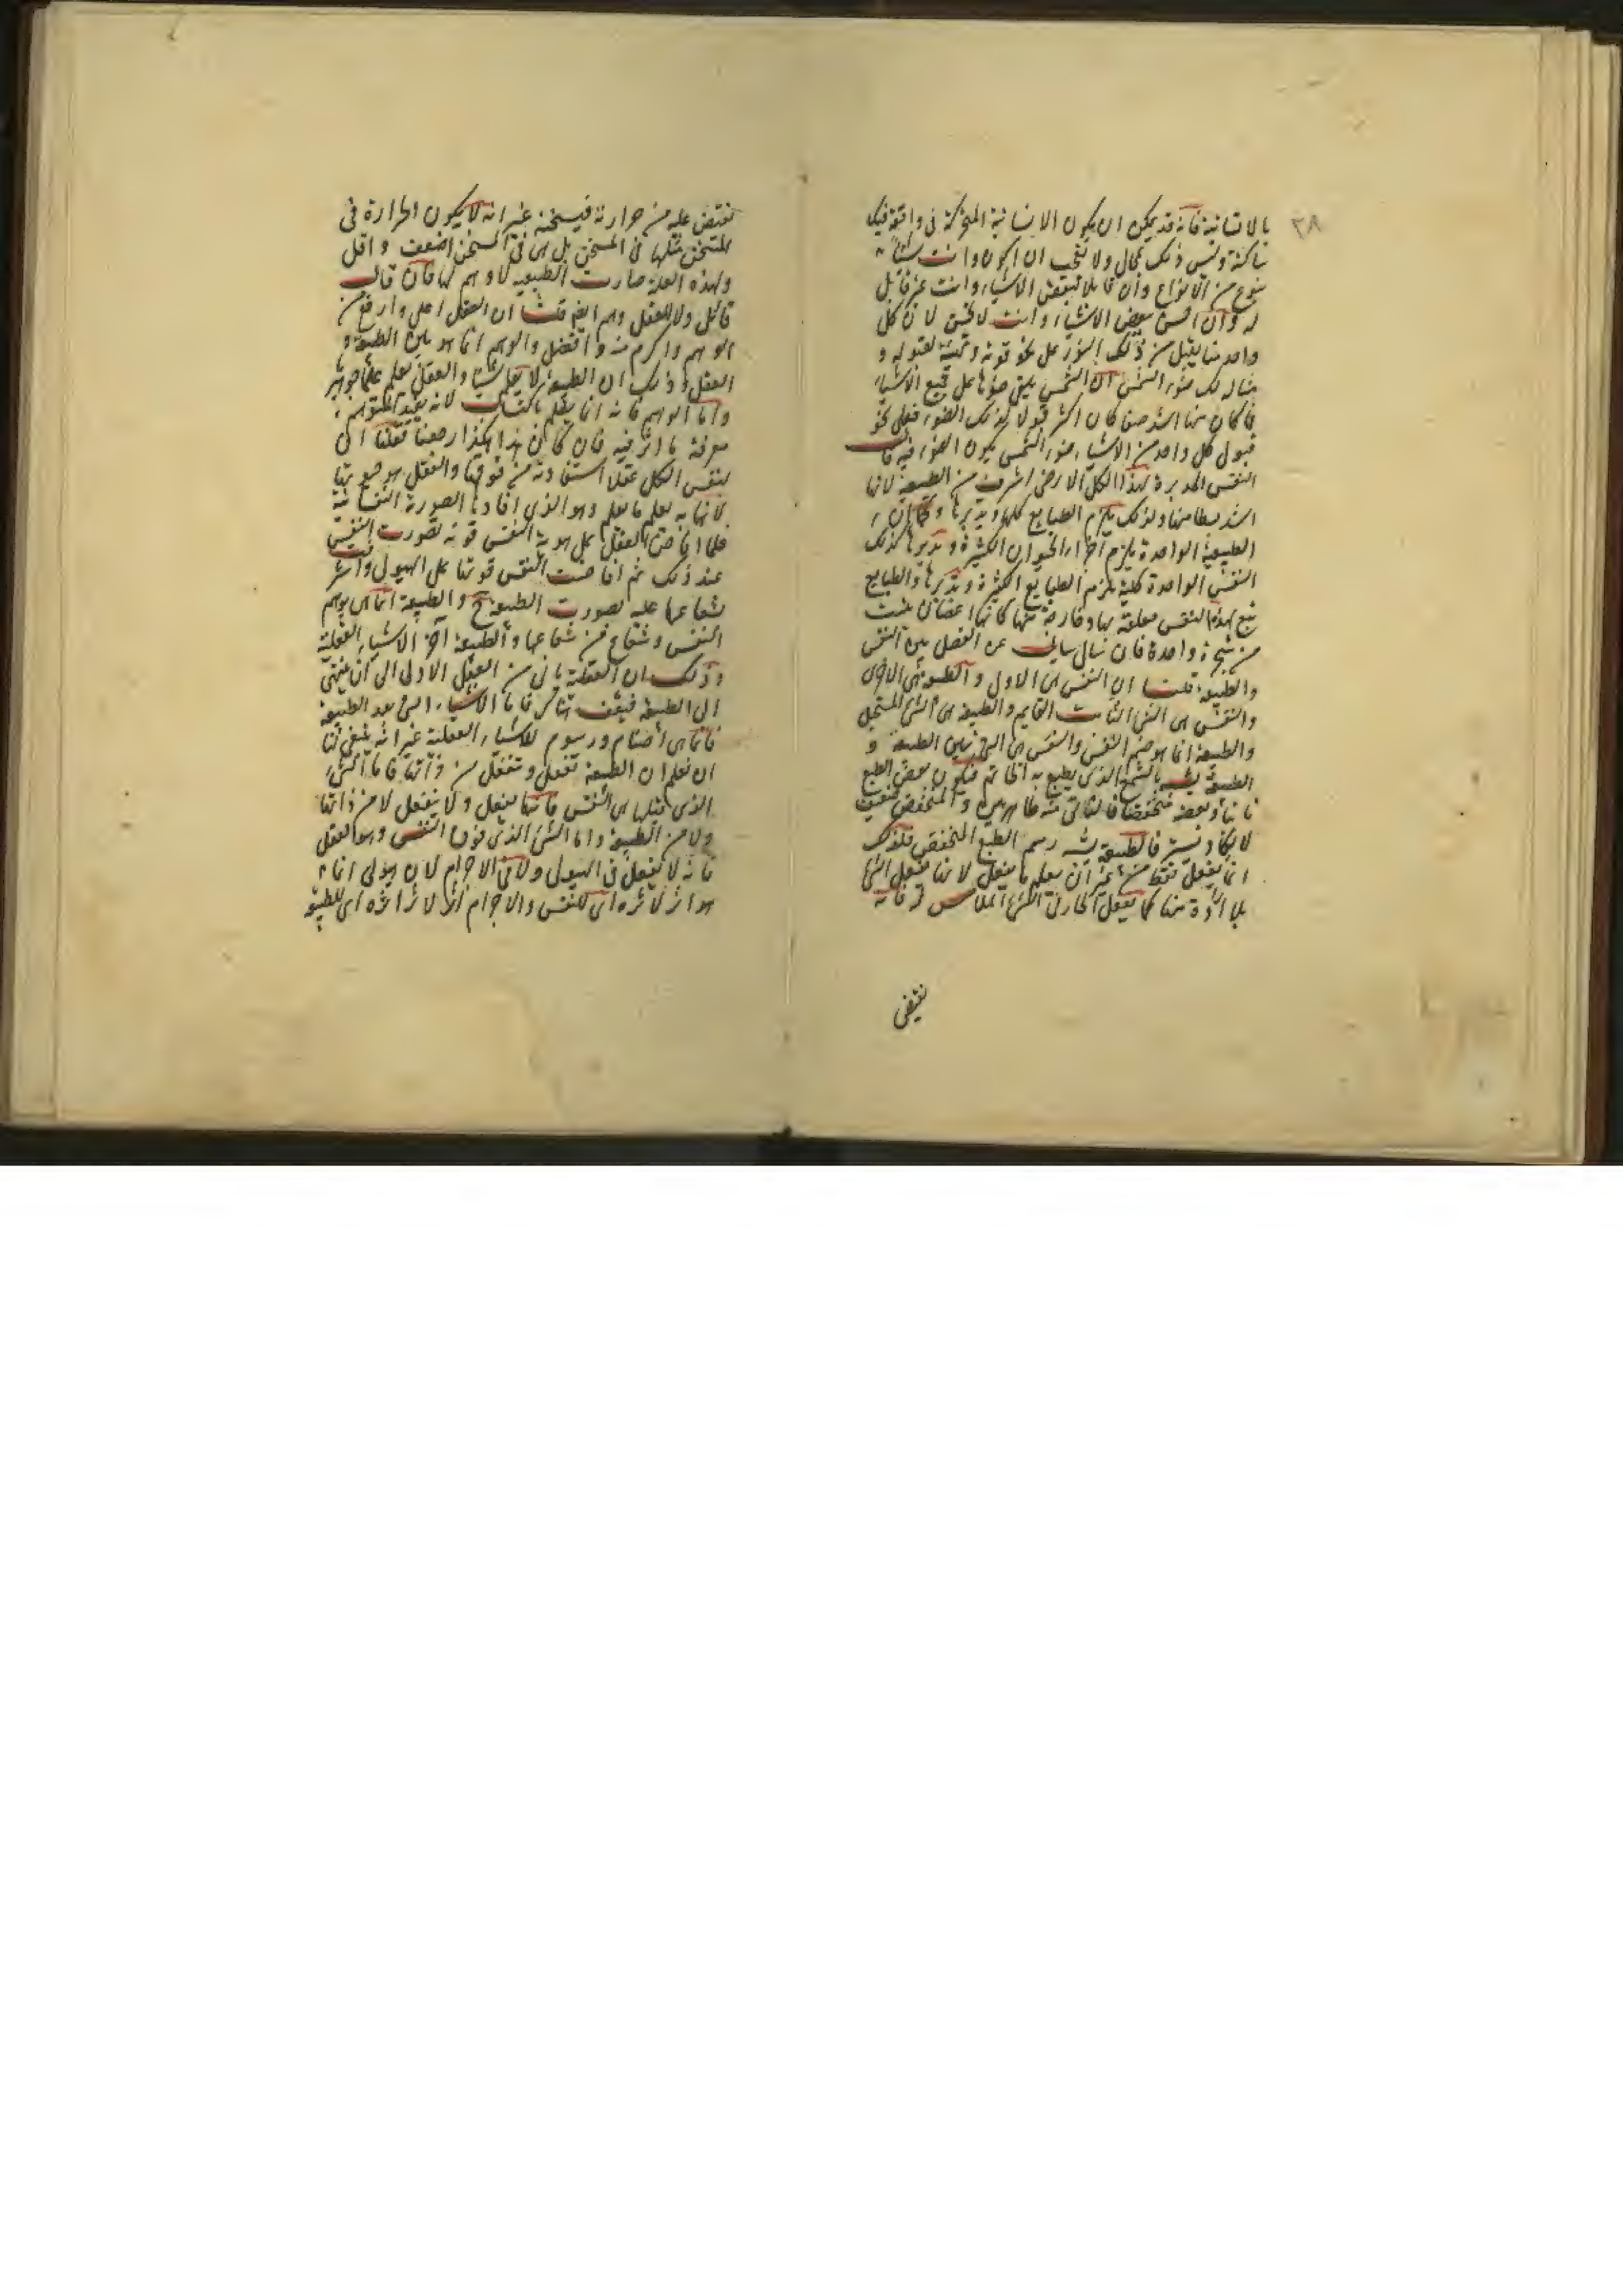 ٣٨
بالانسانية فانه قد يمكن ان يكون الانسانية المتحركة فى وافقة فيك
ساكنة وليس ذلك بمحال ولا تعجب ان اكون وانت شيئا
بنوع من الانواع وان قابلا لبعض الاشياء وانت غير قابل
له وان احس ببعض الاشياء وانت لا تحس لان كل
واحد منا يقبل من ذلك النور على نحو قوته وتهيئه لقبوله و
مثال ذلك ضوء الشمس ان الشمس يلقى ضوءها على جميع الاشياء
فما كان منها اشد صفا كان اكثر قبولا لذلك الضوء فعلى نحو
قبول كل واحد من الاشياء ضوء الشمس يكون الضوء فيه قال
النفس المدبرة لهذا الكل الارضى اشرف من الطبيعة لانها
اشد بسطا منها ولذلك يلزم الطبايع كلها ويدبرها وكما ان
الطبيعة الواحدة يلزم اجزاء الحيوان الكثيرة وتدبرها كذلك
النفس الواحدة كلية يلزم الطبايع الكثيرة وتدبرها والطبايع
تبع لهذه النفس معلقة بها وخارجة منها كانها اغصان نبتت
من شجرة واحدة فان سال سايل عن الفصل بين النفس
والطبيعة قلنا ان النفس هى الاول والطبيعة هى الاخرى
والنفس هى الشئ الثابت القايم والطبيعة هى الشئ المستحيل
والطبيعة انما هو صنم النفس والنفس هى التى بين الطبيعة و
الطبيعة يشبه بالشمع الذى يطبع به الخاتم فيكون بعض الطبع
ناتيا وبعضه منخفضا فالناتى منه ظاهر بين والمنخفض ضعيف
لا يكاد فالطبيعة رسم الطبع المنخفض فلذلك
انما يفعل فقط من غير ان يعلم ما يفعل لانها تفعل الشئ
بلا ارادة منها كما يفعل الحار فى الشئ الملامس له فانه
تفيض
تفيض عليه من حرارته فيسخنه غير انه لا يكون الحرارة فى
المتسخن مثلها فى المسخن بل هى فى المتسخن اضعف واقل
ولهذه العلة صارت الطبيعية لا وهم لها فان قال
قائل ولا للعقل وهم ايضا قلنا ان العقل اعلى وارفع من
الوهم واكرم منه وافضل والوهم انما هو بين الطبيعة و
العقل وذلك ان الطبيعة لا يعلم شيئا والعقل يعلم علما جوهريا
واما الوهم فانه انما يعلم باكتساب لانه يفيد المتوهم
معرفة ما اثر فيه فان كان هذا هكذا رجعنا فقلنا ان
لنفس الكل عقلا استفادته من فوقها والعقل هو صورتها
لانها به يعلم ما يعلم وهو الذى افادها الصورة النفسانية
فلما افاض العقل على هوية النفس قوته تصورت النفس
عند ذلك ثم افاضت النفس قوتها على الهيولى واشرقت
شعاعها عليه تصورت الطبيعة ح والطبيعة انما هى وهم
النفس وشعاع من شعاعها والطبيعة آخر الاشياء العقلية
وذلك ان العقلية ياتى من العقل الاول الى ان ينتهى
الى الطبيعة فيقف هناك فاما الاشياء التى بعد الطبيعة
فانما هى اصنام ورسوم للاشياء العقلية غير انه ينبغى لنا
ان نعلم ان الطبيعة تفعل وتنفعل من ذاتها فاما الشئ
الذى مثلها هى النفس فانها يفعل ولا ينفعل لا من ذاتها
ولا من الطبيعة واما الشئ الذى فوق النفس وهو العقل
فانه لا يفعل فى الهيولى ولا فى الاجرام لان هيولى انما
هو اثر لاثره اى للنفس والاجرام اثر لاثر اثره اى للطبيعة